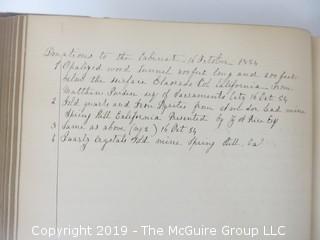 Donations to the Cabinet 16 October 1854
1 Opalized wood tunnel 200 feet long and 200 feet
below the surface Co California. From
Matthew Esq of Sacramento City 16 Oct 54
2 Gold quartz and Iron Pyrites from mine
Spring Hill California Presented by Rice Esq
3 Same as above (No 2) 16 Oct 54
4 Quartz Crystals Gold mine Spring Hill, Ca
Copyright © 2019 - McGuire Co.